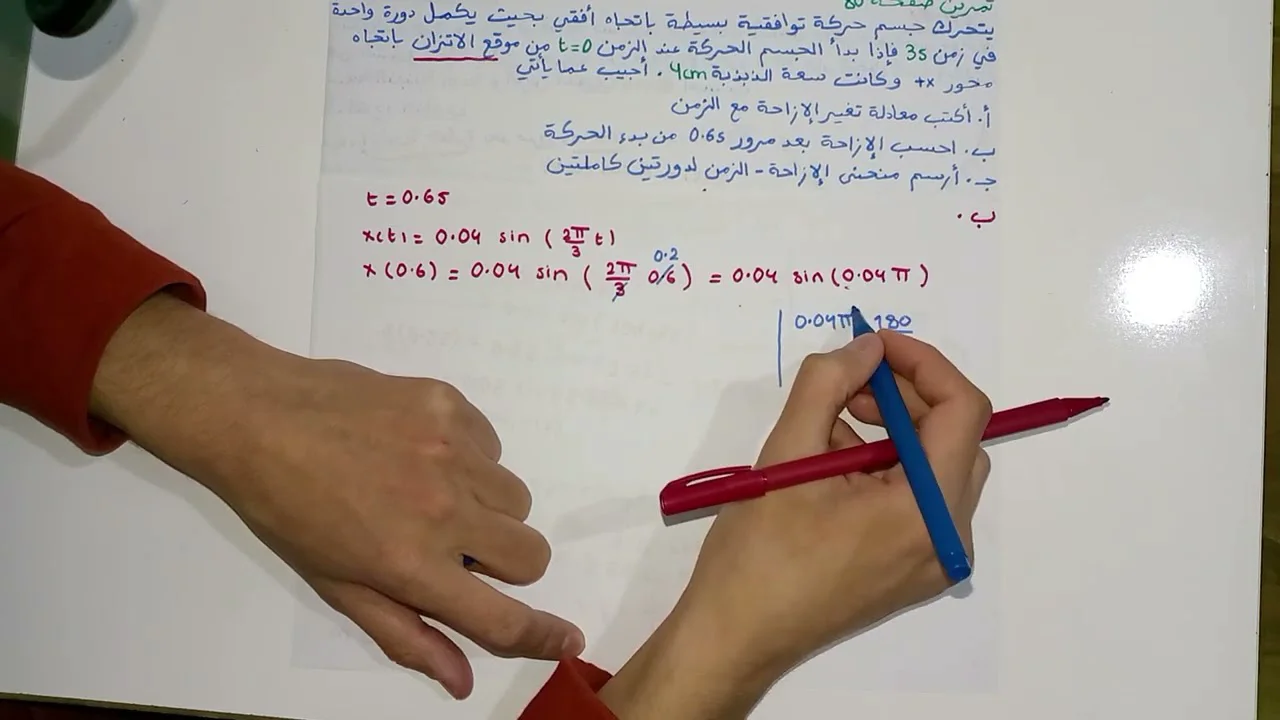 تمرين صفحة
يتحرك جسم حركة توافقية بسيطة باتجاه أفقي بحيث يكمل دورة واحدة
في زمن 3s فإذا بدأ الجسم الحركة عند الزمن t=0 من موقع الاتزان باتجاه
محور x+ وكانت سعة الذبذبة 4cm . أجيب عما يأتي
أ. أكتب معادلة تغير الإزاحة مع الزمن
ب. احسب الإزاحة بعد مرور 0.6s من بدء الحركة
جـ. أرسم منحنى الإزاحة - الزمن لدورتين كاملتين
ب.
t = 0.6s
x(t) = 0.04 sin ( 2π/3 t)
x (0.6) = 0.04 sin ( 2π/3 0.6 ) = 0.04 sin (0.04 π )
0.2
0.04π 180